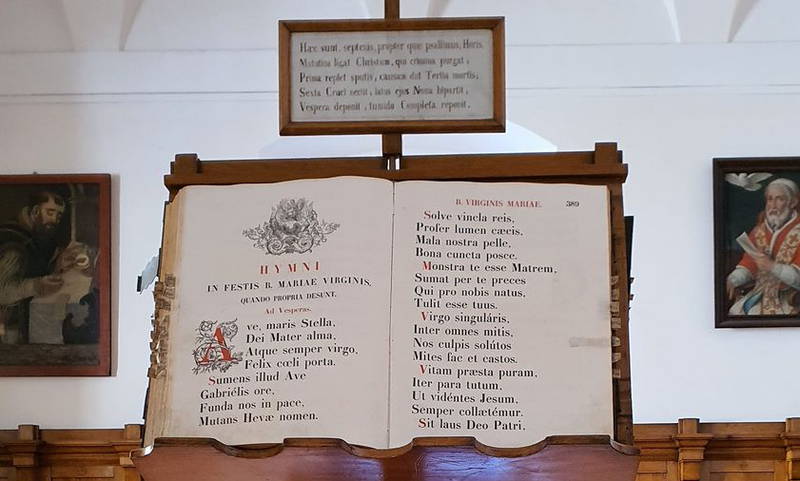 Hæc sunt, septenis, propter quæ psallimus, Horis.
Matutina ligat Christum, qui crimina purgat;
Prima replet sputis; causam dat Tertia mortis;
Sexta Cruci nectit; latus ejus Nona bipartit;
Vespera deponit; tumulo Completa reponit.
HYMNI
IN FESTIS B. MARIAE VIRGINIS,
QUANDO PROPRIA DESUNT.
Ad Vesperas.
Ave, maris Stella,
Dei Mater alma,
Atque semper virgo,
Felix cœli porta.
Sumens illud Ave
Gabriélis ore,
Funda nos in pace,
Mutans Hevæ nomen.
B. VIRGINIS MARIAE. 389
Solve vincla reis,
Profer lumen cæcis,
Mala nostra pelle,
Bona cuncta posce.
Monstra te esse Matrem,
Sumat per te preces
Qui pro nobis natus,
Tulit esse tuus.
Virgo singuláris,
Inter omnes mitis,
Nos culpis solútos
Mites fac et castos.
Vitam præsta puram,
Iter para tutum,
Ut vidéntes Jesum,
Semper collætémur.
Sit laus Deo Patri,